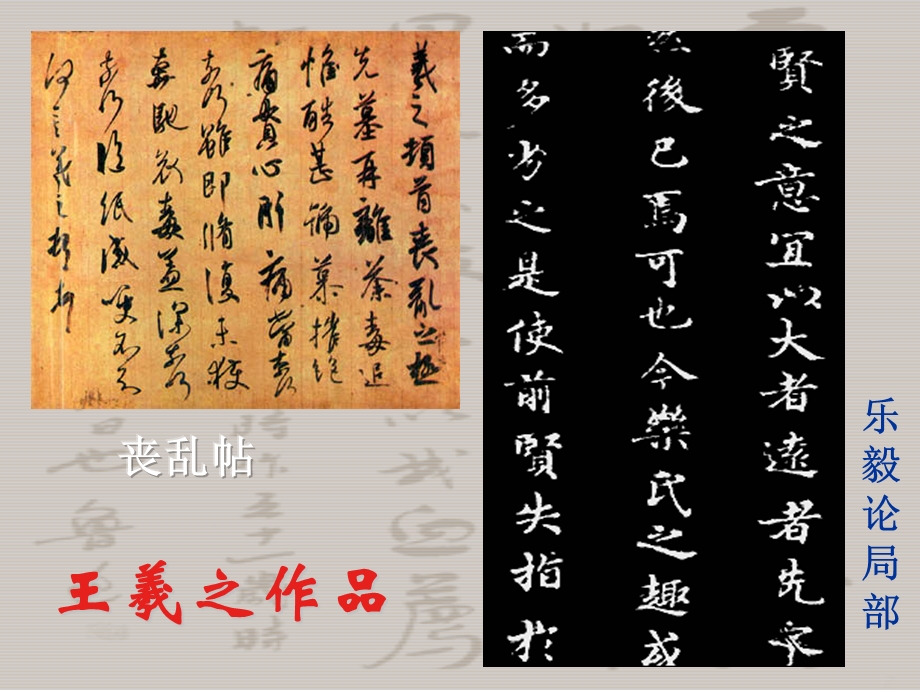 羲之頓首喪亂之極
先墓再離荼毒追
惟酷甚號慕摧絕
痛貫心肝痛當奈何
奈何雖即脩復未獲
奔馳哀毒益深奈何
奈何臨紙感哽不知
何言羲之頓首頓首
丧乱帖
王羲之作品
賢之意宜以大者遠者先
然後已焉可也今樂氏之趣或
而多劣之是使前賢失指於
乐毅论局部